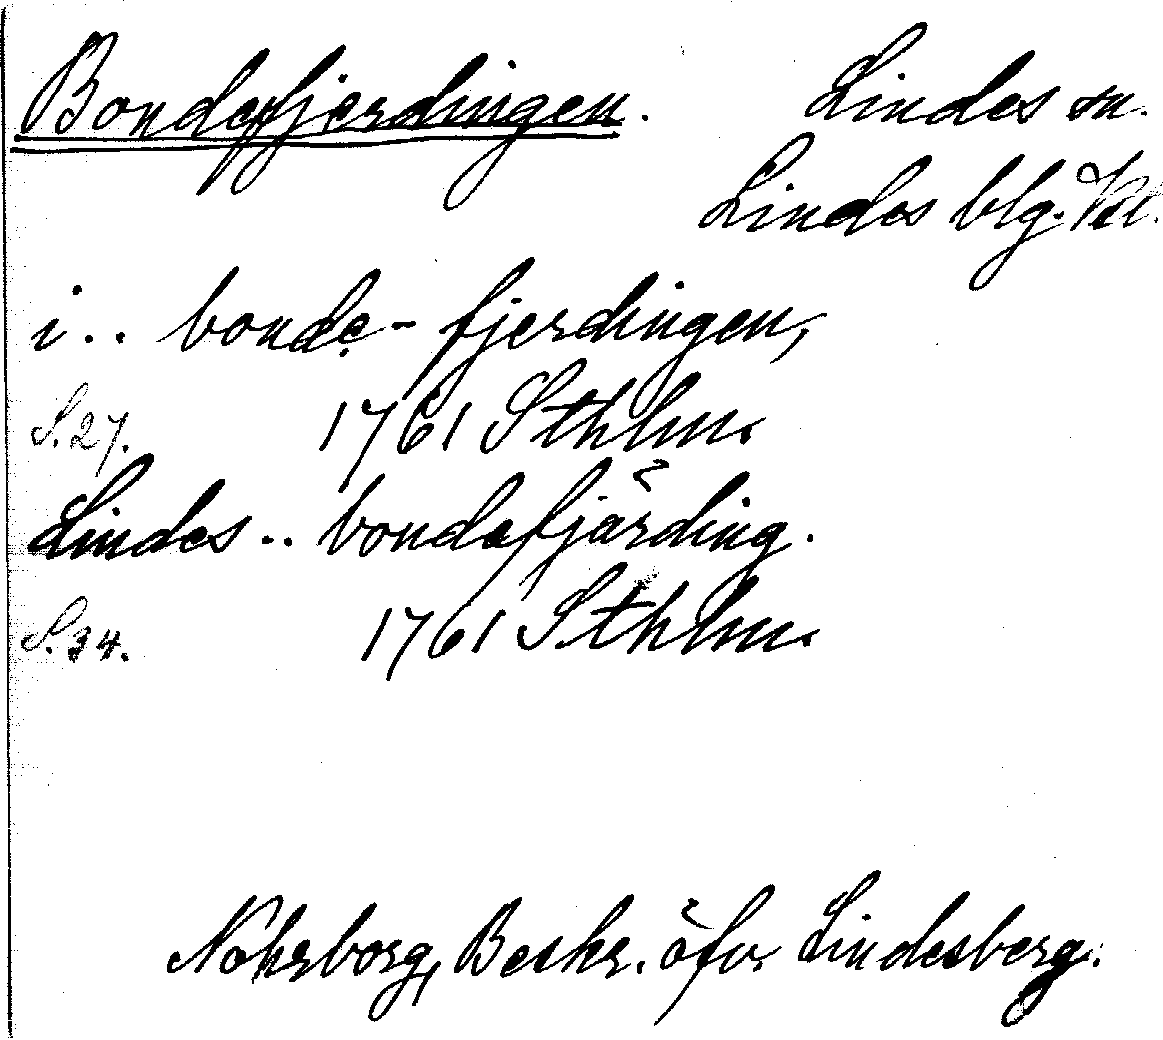 Bondefjerdingen. Lindes sn.
Lindes blg. Vstl.
i.. bonde-fjerdingen,
S.27. 1761 Sthlm.
Lindes.. bondefjärding.
S.34. 1761 Sthlm.
Nohrborg, Beskr. öfv. Lindesberg.